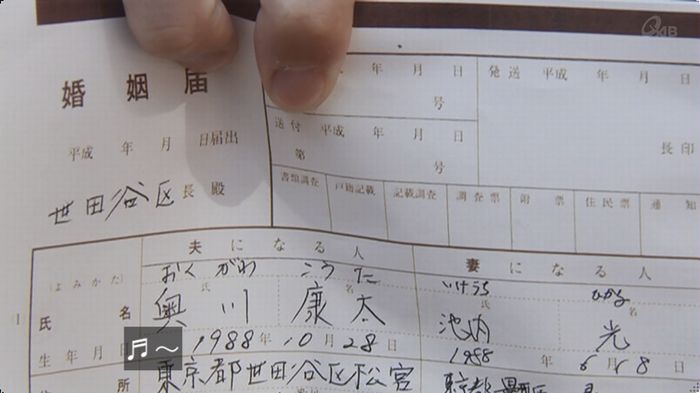 年 月 日
発送 平成 年 月 日
婚姻届
号
送付 平成 年 月 日
長印
平成 年 月 日届出
第 号
世田谷区長殿
書類調査 戸籍記載 記載調査 調査票 附票 住民票 通知
夫になる人
妻になる人
(よみかた)
おくがわ こうた
いけうち ひかる
氏 名
氏 名
1
氏名
奥川 康太
池内 光
生年月日
♬～
1988年10月28日
1988年
東京都世田谷区松宮
東京都
所